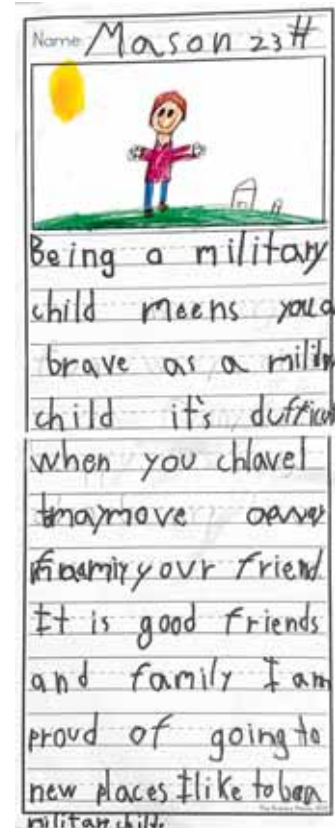 Name Mason 23#
Being a military
child meens you a
brave as a milita
child it's dufficu
when you chlavel
move
your friend
It is good friends
and family I am
proud of going to
new places I like to be a
military child.